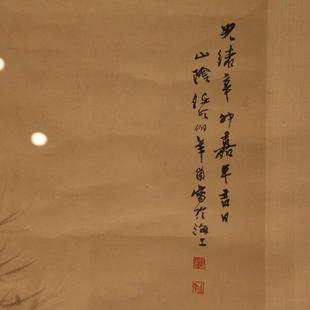 光緒辛卯嘉平吉日
山陰任伯年甫寫於海上